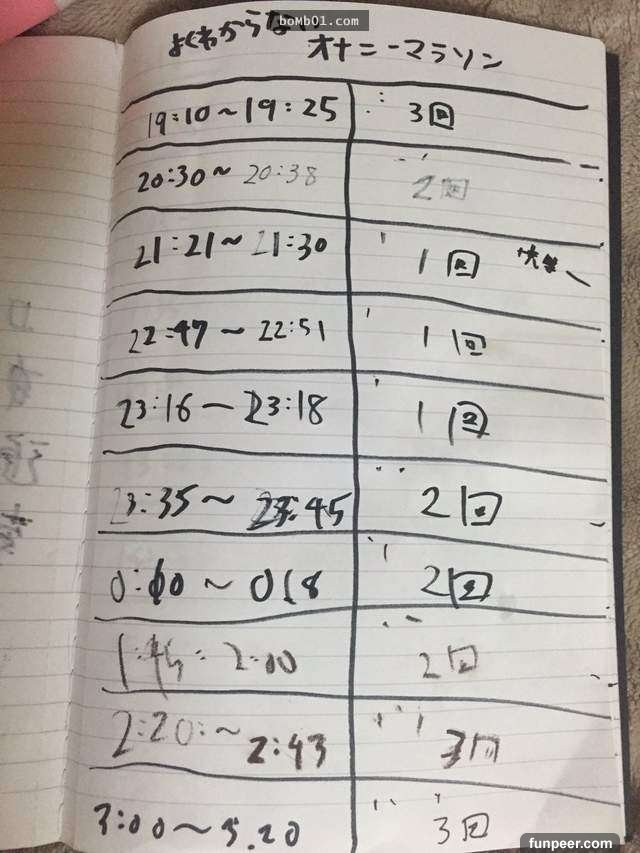 bomb01.com
よくわからない
オナニーマラソン
19:10〜19:25 3回
20:30〜20:38 2回
21:21〜21:30 1回
22:47〜22:51 1回
23:16〜23:18 1回
23:35〜23:45 2回
0:10〜018 2回
1:45: 2:00 2回
2:20:〜2:43 3回
3:00〜3.20 3回
funpeer.com